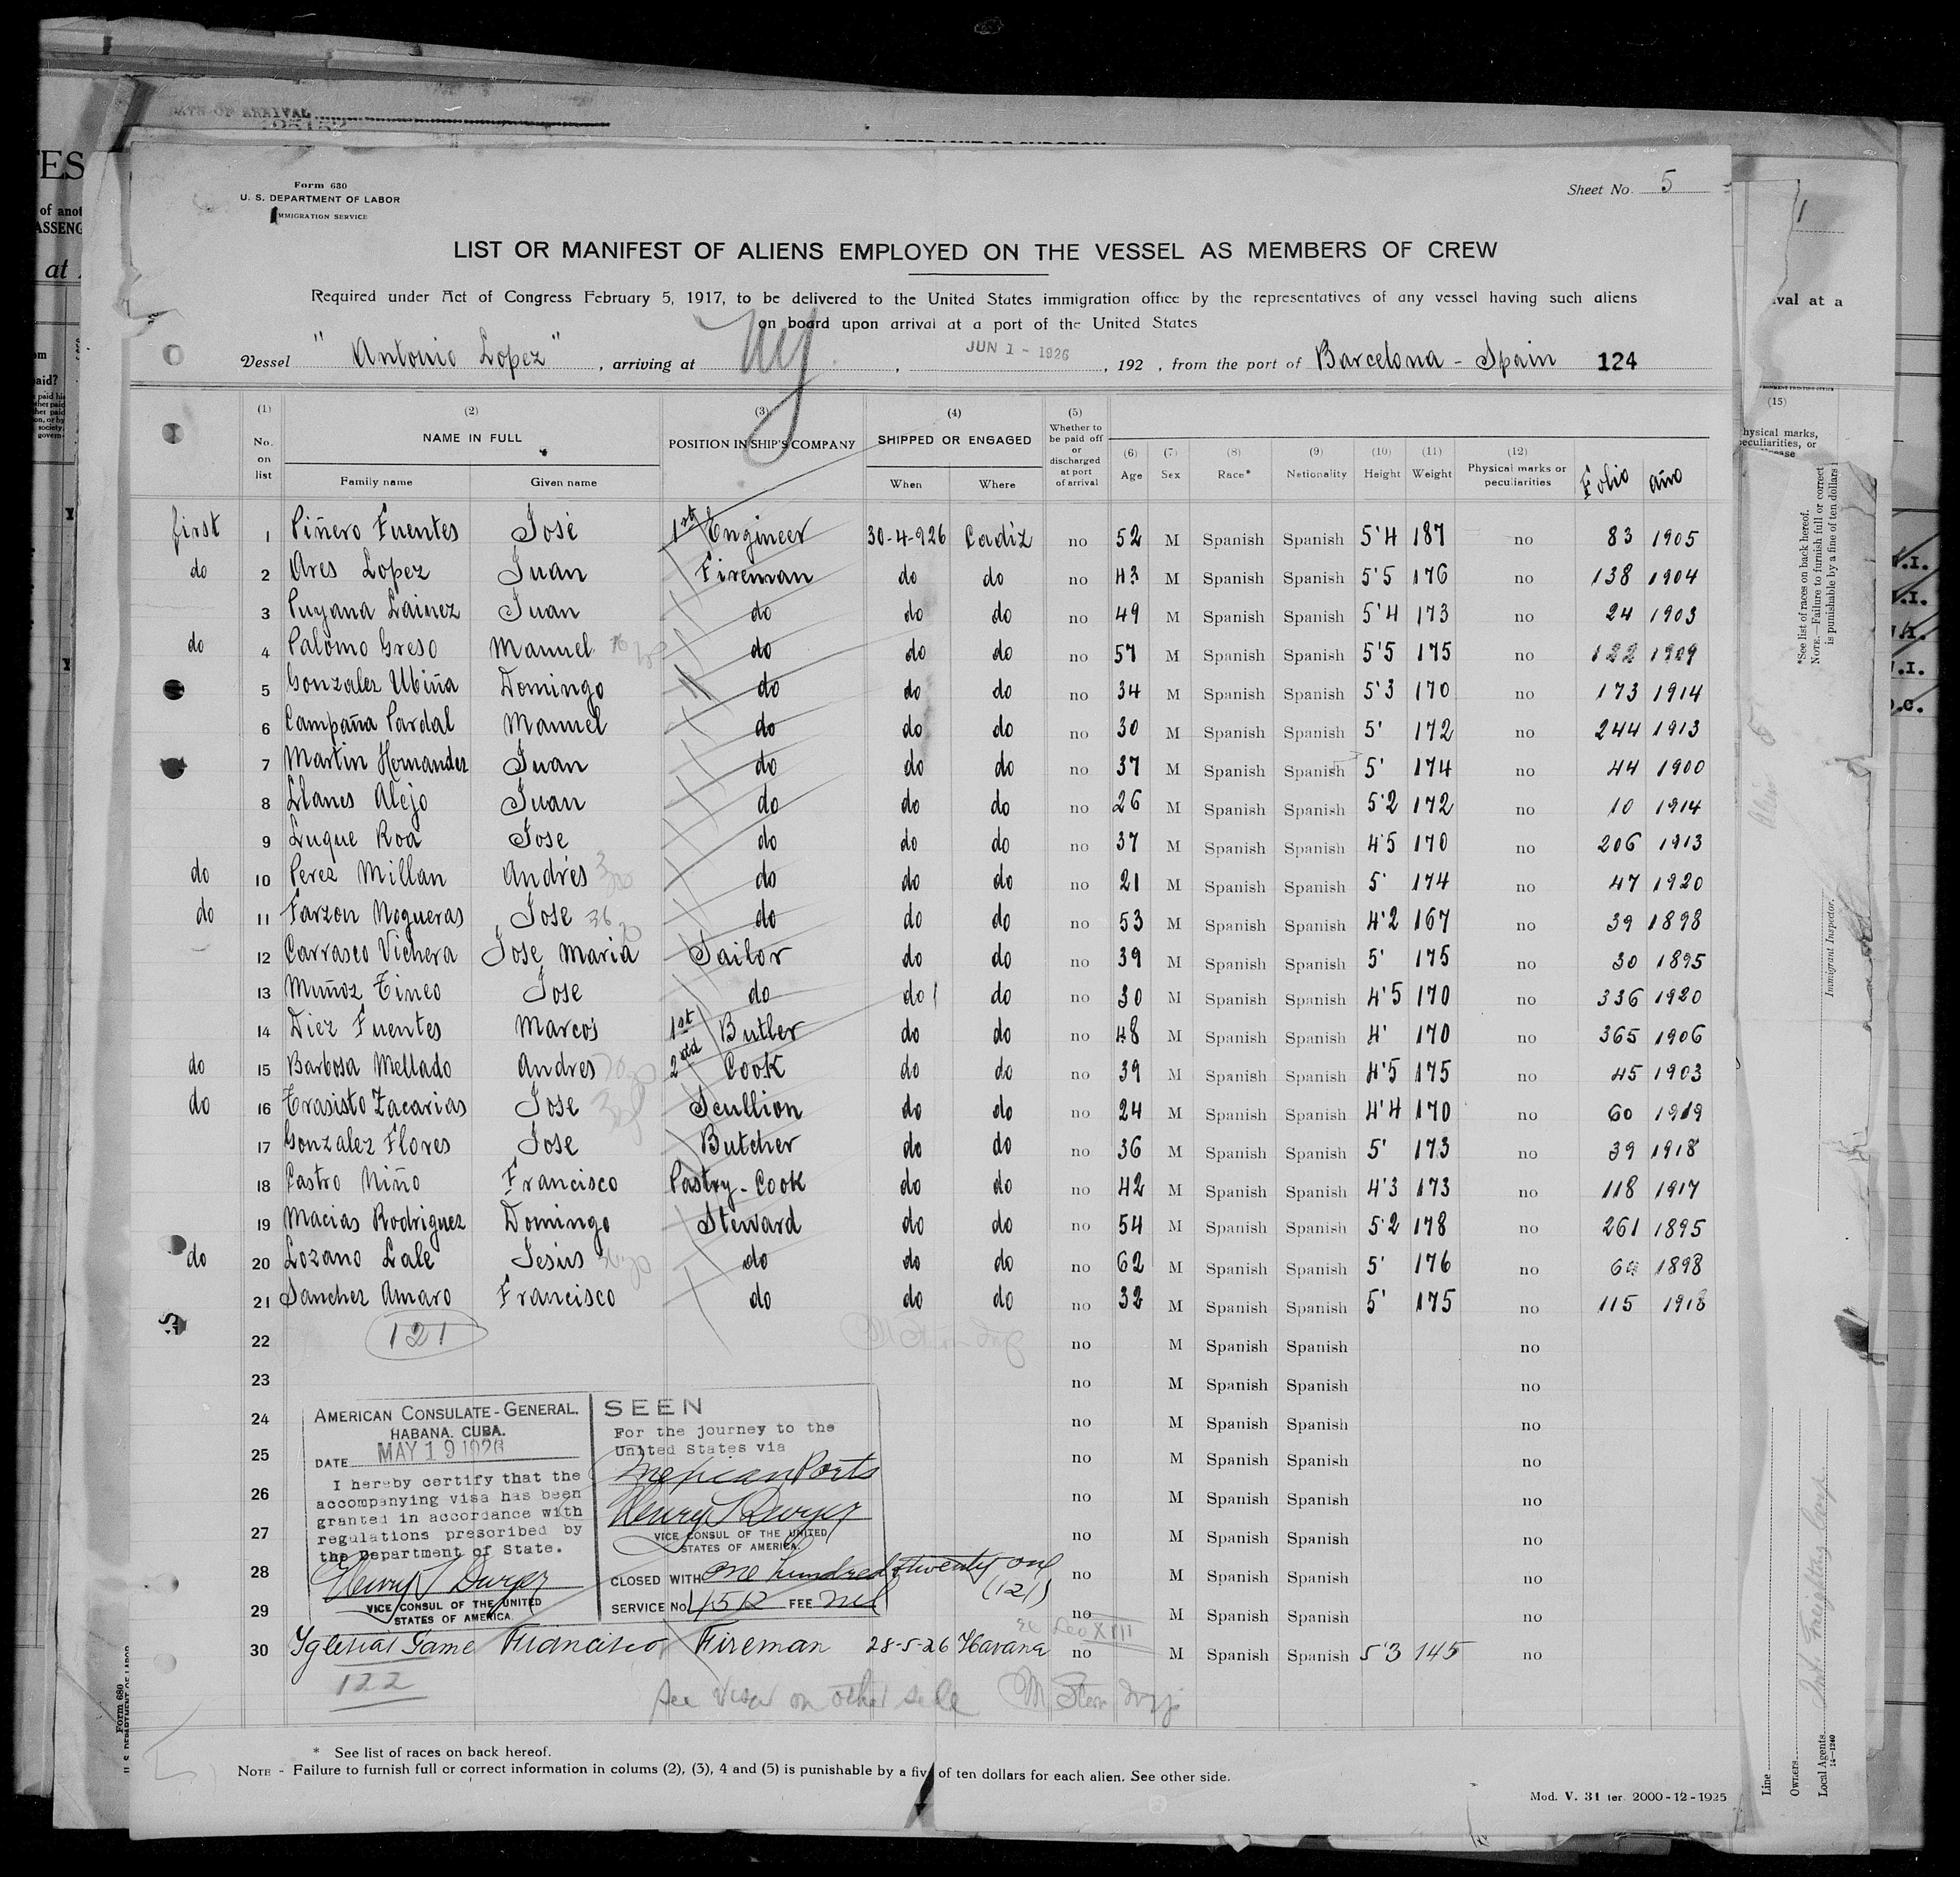 DATE OF ARRIVAL
TES
of anot
ASSENG
at
Form 680
U. S. DEPARTMENT OF LABOR
IMMIGRATION SERVICE
Sheet No. 5
LIST OR MANIFEST OF ALIENS EMPLOYED ON THE VESSEL AS MEMBERS OF CREW
Required under Act of Congress February 5, 1917, to be delivered to the United States immigration office by the representatives of any vessel having such aliens
on board upon arrival at a port of the United States
Vessel "Antonio Lopez", arriving at NY, JUN 1 - 1926, 192 , from the port of Barcelona - Spain 124
(1) (2) (3) (4) (5) (6) (7) (8) (9) (10) (11) (12)
No. on list NAME IN FULL POSITION IN SHIP'S COMPANY SHIPPED OR ENGAGED Whether to be paid off or discharged at port of arrival Age Sex Race* Netionality Height Weight Physical marks or peculiarities Folio año
Family name Given name When Where
first 1 Piñero Fuentes José 1st Engineer 30-4-926 Cadiz no 52 M Spanish Spanish 5'4 187 no 83 1905
do 2 Ares Lopez Juan Fireman do do no 43 M Spanish Spanish 5'5 176 no 138 1904
3 Puyana Lainez Juan do do do no 49 M Spanish Spanish 5'4 173 no 24 1903
do 4 Palomo Greso Manuel do do do no 57 M Spanish Spanish 5'5 175 no 122 1909
5 Gonzalez Ubiña Domingo do do do no 34 M Spanish Spanish 5'3 170 no 173 1914
6 Campaña Pardal Manuel do do do no 30 M Spanish Spanish 5' 172 no 244 1913
7 Martin Hernandez Juan do do do no 37 M Spanish Spanish 5' 174 no 44 1900
8 Llanes Alejo Juan do do do no 26 M Spanish Spanish 5'2 172 no 10 1914
9 Luque Roa Jose do do do no 37 M Spanish Spanish 4'5 170 no 206 1913
do 10 Perez Millan Andrés do do do no 21 M Spanish Spanish 5' 174 no 47 1920
do 11 Farzon Nogueras Jose 36 do do do no 53 M Spanish Spanish 4'2 167 no 39 1898
12 Carrasco Vichera Jose Maria Sailor do do no 39 M Spanish Spanish 5' 175 no 30 1895
13 Muñoz Tineo Jose do do do no 30 M Spanish Spanish 4'5 170 no 336 1920
14 Diez Fuentes Marcos 1st Butler do do no 48 M Spanish Spanish 4' 170 no 365 1906
do 15 Barbosa Mellado Andres 2nd Cook do do no 39 M Spanish Spanish 4'5 175 no 45 1903
do 16 Trasisto Zacarias Jose Scullion do do no 24 M Spanish Spanish 4'4 170 no 60 1919
17 Gonzalez Flores Jose Butcher do do no 36 M Spanish Spanish 5' 173 no 39 1918
18 Castro Niño Francisco Pastry-Cook do do no 42 M Spanish Spanish 4'3 173 no 118 1917
19 Macias Rodriguez Domingo Steward do do no 54 M Spanish Spanish 5'2 178 no 261 1895
do 20 Lozano Lale Jesús do do do no 62 M Spanish Spanish 5' 176 no 1898
21 Sanchez Amaro Francisco do do do no 32 M Spanish Spanish 5' 175 no 115 1918
22 121 no M Spanish Spanish no
23 no M Spanish Spanish no
24 no M Spanish Spanish no
25 no M Spanish Spanish no
26 no M Spanish Spanish no
27 no M Spanish Spanish no
28 no M Spanish Spanish no
29 no M Spanish Spanish no
AMERICAN CONSULATE-GENERAL.
HABANA. CUBA.
DATE MAY 19 1926
I hereby certify that the
accompanying visa has been
granted in accordance with
regulations prescribed by
the Department of State.
Henry T Dwyer
VICE CONSUL OF THE UNITED
STATES OF AMERICA.
SEEN
For the journey to the
United States via
Mexican Ports
Henry T Dwyer
VICE CONSUL OF THE UNITED
STATES OF AMERICA.
CLOSED WITH one hundred & twenty one
(121)
SERVICE No. 4512 FEE nil
ex Leo XIII
30 Yglesias Game Francisco Fireman 28-5-26 Havana no M Spanish Spanish 5'3 145 no
122
see visa on other side M Stern
* See list of races on back hereof.
NOTE - Failure to furnish full or correct information in colums (2), (3), 4 and (5) is punishable by a five of ten dollars for each alien. See other side.
Mod. V. 31 ter. 2000-12-1925
ival at a
(15)
hysical marks,
eculiarities, or
*See list of races on back hereof.
NOTE.—Failure to furnish full or correct
is punishable by a fine of ten dollars
Immigrant Inspector.
Line
Owners
Local Agents
14-1240
Form 680